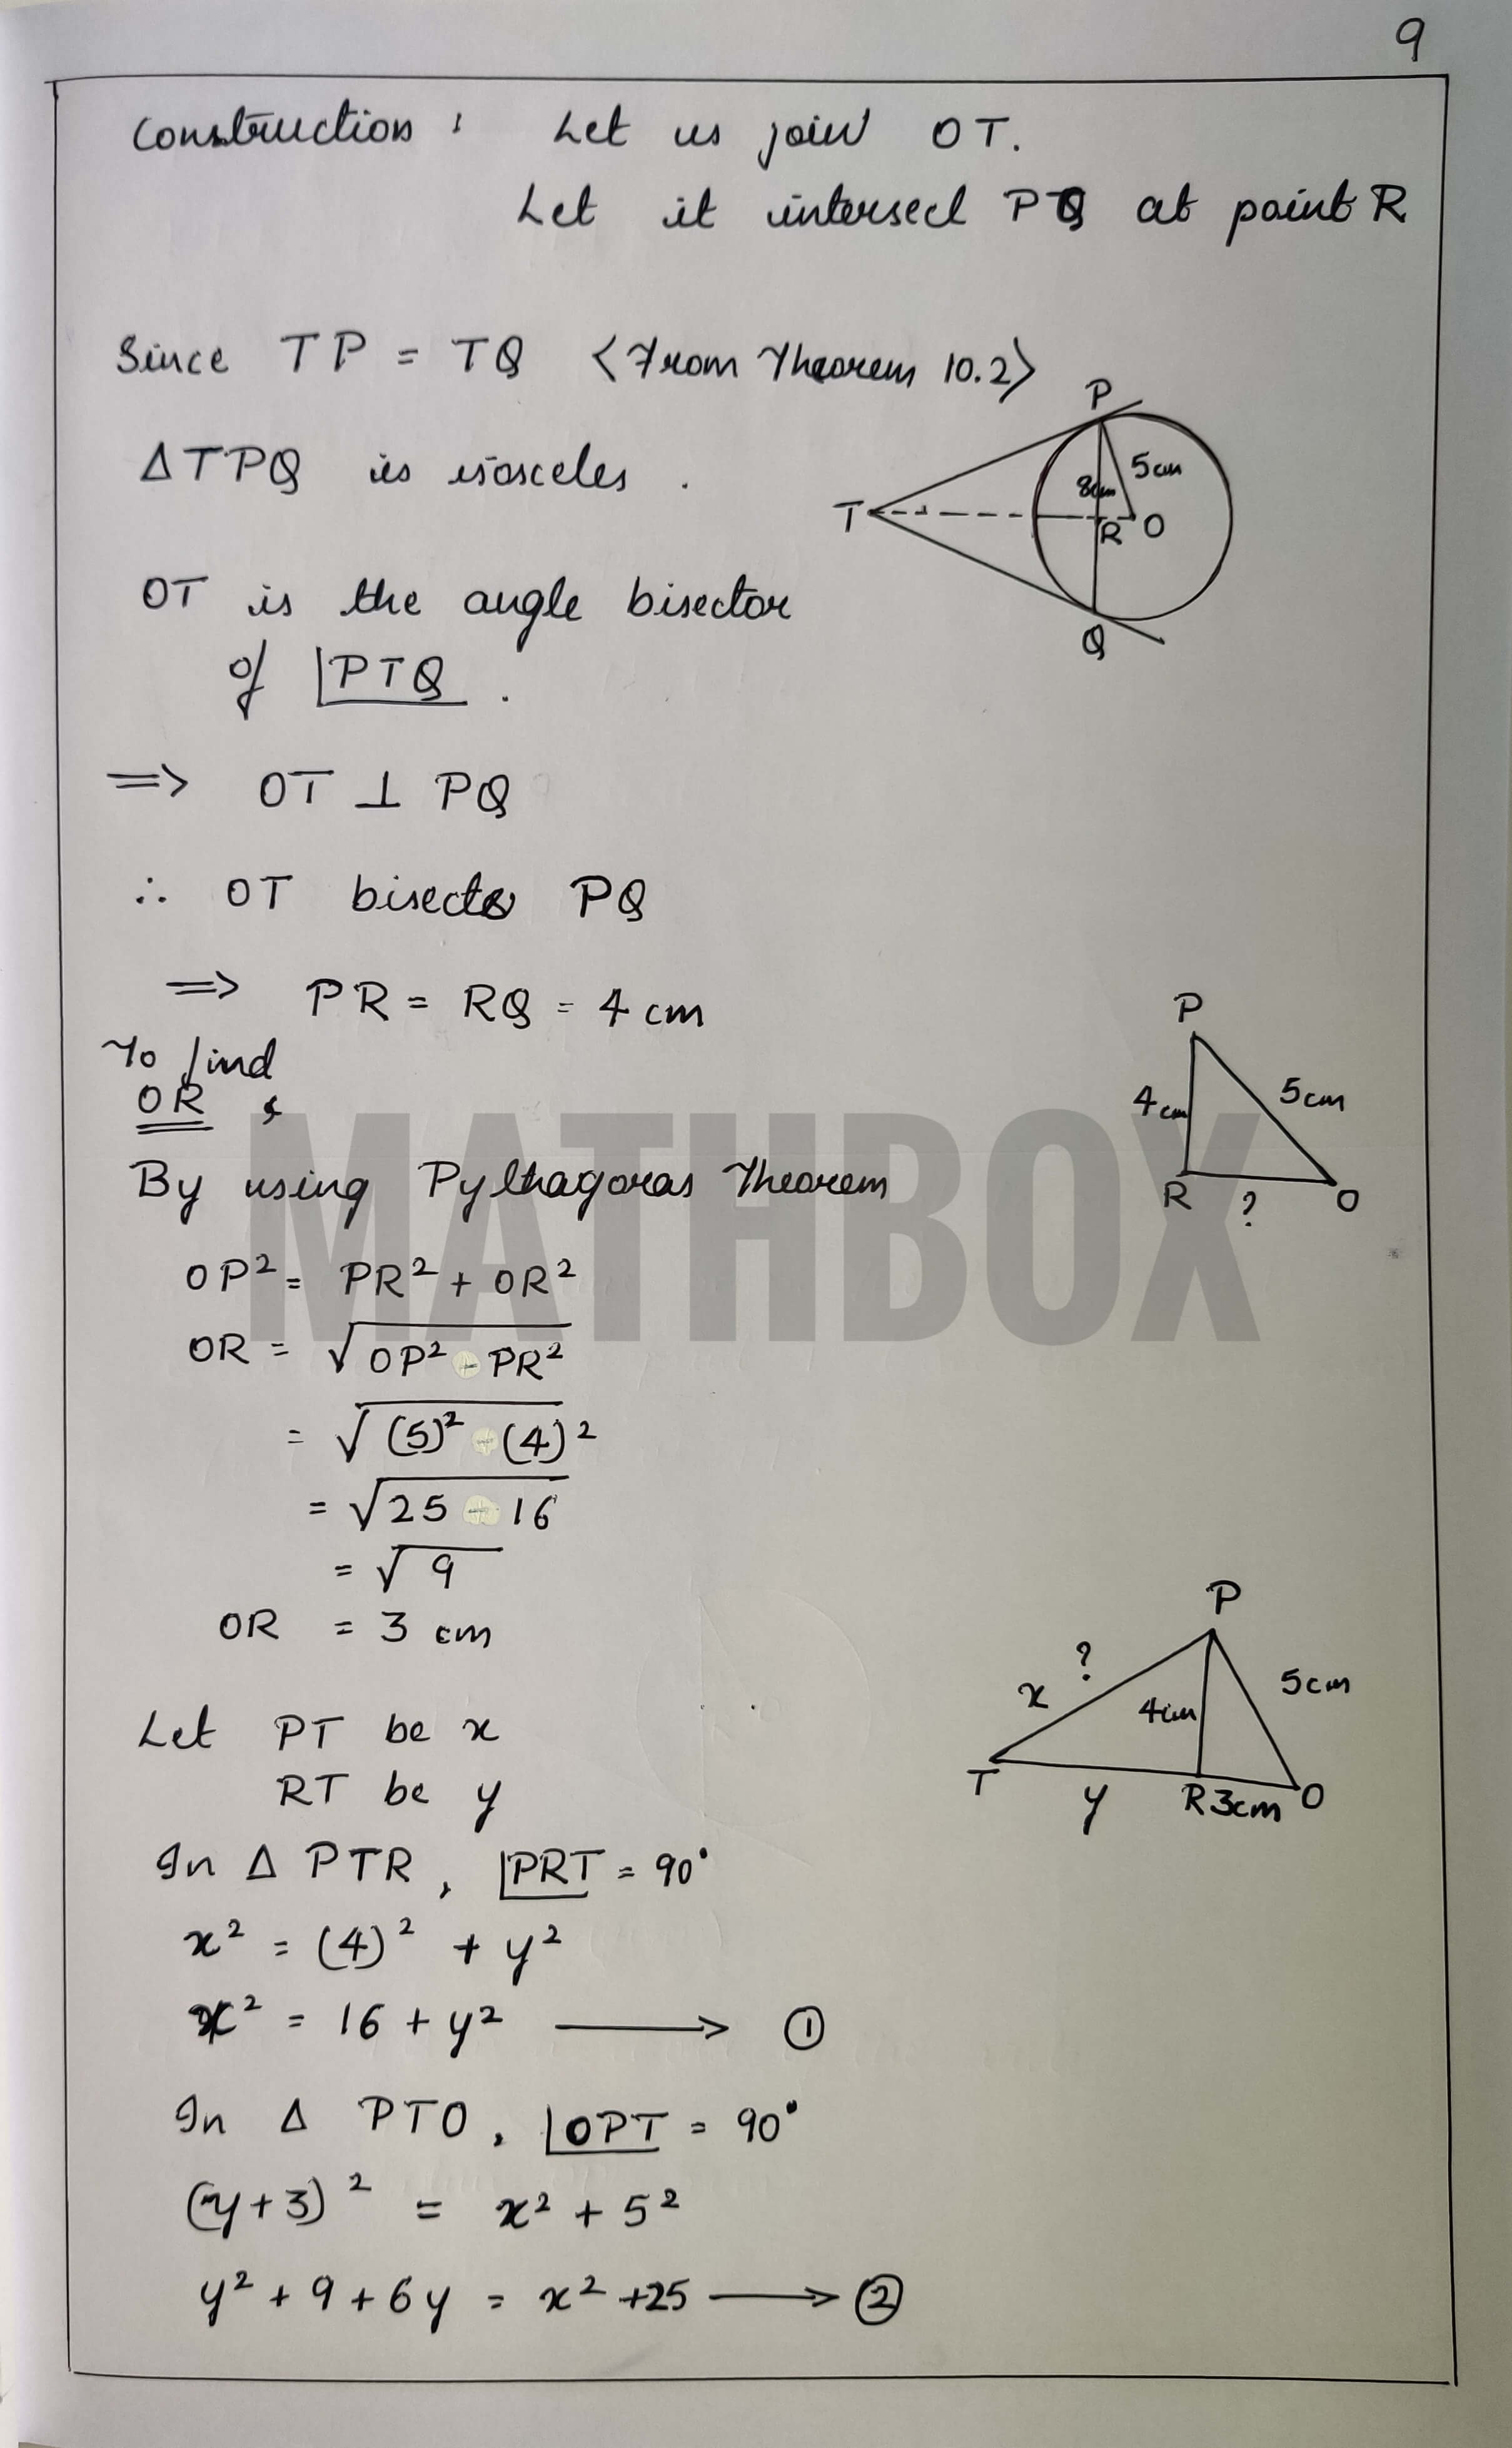 9
Construction : Let us join OT.
Let it intersect PQ at point R
Since TP = TQ <From Theorem 10.2>
∆TPQ is isosceles .
P
5cm
8cm
T
R
O
Q
OT is the angle bisector
of ∠PTQ .
=> OT ⊥ PQ
∴ OT bisects PQ
=> PR = RQ = 4 cm
To find
OR :
P
4cm
5cm
R
?
O
MATHBOX
By using Pythagoras Theorem
OP² = PR² + OR²
OR = √OP² - PR²
= √(5)² - (4)²
= √25 - 16
= √9
OR = 3 cm
P
?
x
5cm
4cm
T
y
R 3cm O
Let PT be x
RT be y
In ∆ PTR , ∠PRT = 90°
x² = (4)² + y²
x² = 16 + y² ⟶ ①
In ∆ PTO , ∠OPT = 90°
(y+3)² = x² + 5²
y² + 9 + 6y = x² +25 ⟶ ②